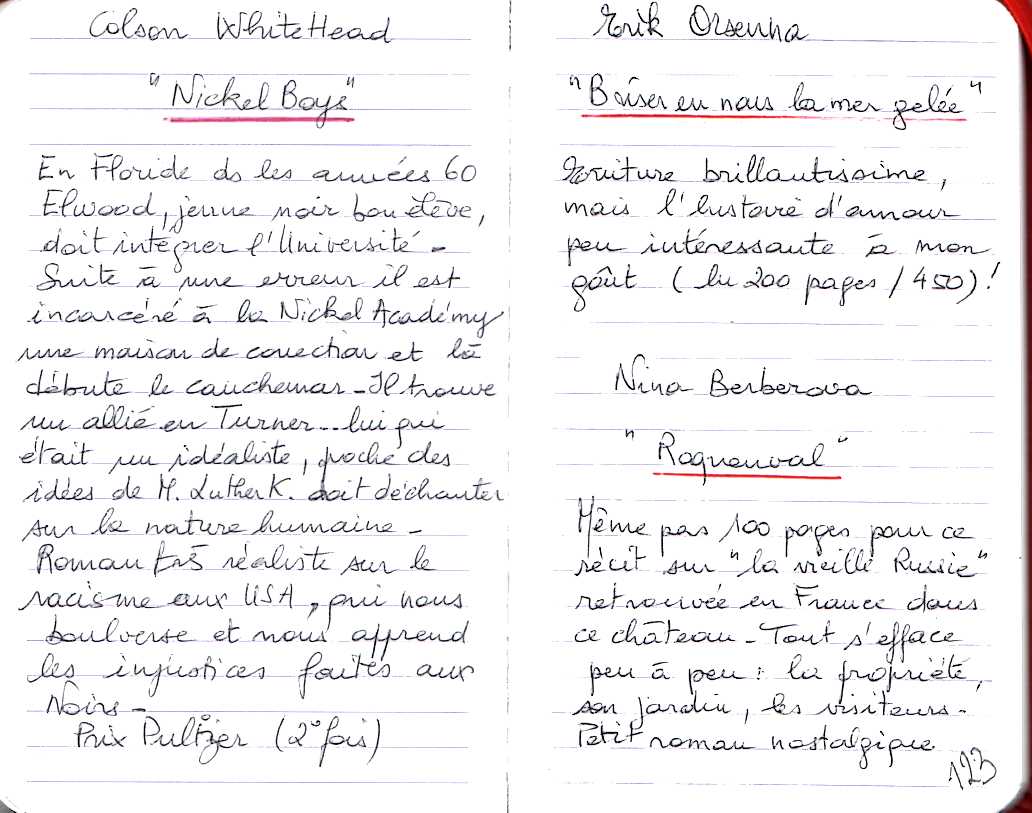 Colson WhiteHead
"Nickel Boys"
En Floride ds les années 60
Elwood, jeune noir bon élève,
doit intégrer l'Université -
Suite à une erreur il est
incarcéré à la Nickel Académy
une maison de correction et là
débute le cauchemar - Il trouve
un allié en Turner... lui qui
était un idéaliste, proche des
idées de M. Luther K. doit déchanter
sur la nature humaine -
Roman très réaliste sur le
racisme aux USA, qui nous
boulverse et nous apprend
les injustices faites aux
Noirs -
Prix Pulitzer (2° fois)
Erik Orsenna
"Briser en nous la mer gelée"
Ecriture brillantissime,
mais l'histoire d'amour
peu intéressante à mon
goût (lu 200 pages / 450)!
Nina Berberova
"Roquenval"
Même pas 100 pages pour ce
récit sur "la vieille Russie"
retrouvée en France dans
ce château - Tout s'efface
peu à peu : la propriété,
son jardin, les visiteurs -
Petit roman nostalgique
123